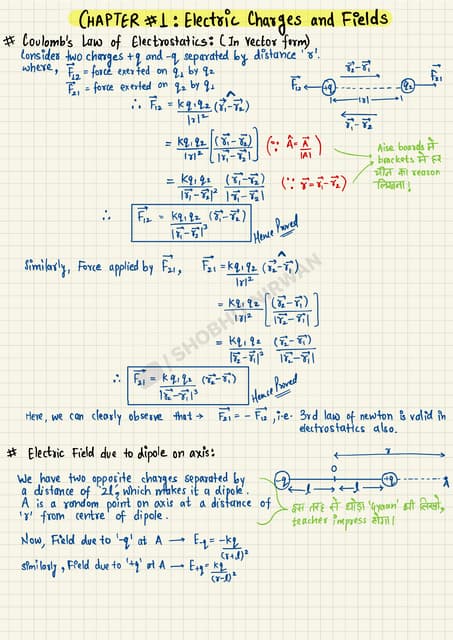 CHAPTER #1: Electric Charges and Fields
# Coulomb's Law of Electrostatics: (In vector form)
Consider two charges +q and -q separated by distance 'r'.
where, F⃗₁₂ = force exerted on q₁ by q₂
F⃗₂₁ = force exerted on q₂ by q₁
F⃗₁₂ +q q₂ F⃗₂₁
r⃗₂-r⃗₁
|r|
r⃗₁-r⃗₂
∴ F⃗₁₂ = kq₁q₂/|r|² (r⃗₁-r⃗₂)^
= kq₁q₂/|r|² [(r⃗₁-r⃗₂)/|r⃗₁-r⃗₂|] (∵ Â = A⃗/|A|)
= kq₁q₂/|r⃗₁-r⃗₂|² (r⃗₁-r⃗₂)/|r⃗₁-r⃗₂| (∵ r⃗ = r⃗₁-r⃗₂)
Aise boards में
brackets में हर
चीज का reason
लिखना!
∴ F⃗₁₂ = kq₁q₂/|r⃗₁-r⃗₂|³ (r⃗₁-r⃗₂)
Hence Proved
Similarly, Force applied by F⃗₂₁, F⃗₂₁ = kq₁q₂/|r|² (r⃗₂-r⃗₁)^
= kq₁q₂/|r|² [(r⃗₂-r⃗₁)/|r⃗₂-r⃗₁|]
= kq₁q₂/|r⃗₂-r⃗₁|² (r⃗₂-r⃗₁)/|r⃗₂-r⃗₁|
∴ F⃗₂₁ = kq₁q₂/|r⃗₂-r⃗₁|³ (r⃗₂-r⃗₁)
Hence Proved
Here, we can clearly observe that → F⃗₂₁ = -F⃗₁₂, i.e. 3rd law of newton is valid in
electrostatics also.
# Electric Field due to dipole on axis:
We have two opposite charges separated by
a distance of '2l', which makes it a dipole.
A is a random point on axis at a distance of
'r' from centre of dipole.
r
O
-q l l +q A
इस तरह से थोड़ा 'Gyaan' भी लिखो,
teacher impress होगा!
Now, Field due to '-q' at A → E-q = -kq/(r+l)²
similarly, Field due to '+q' at A → E+q = kq/(r-l)²
/ SHOBHIT NIRWAN